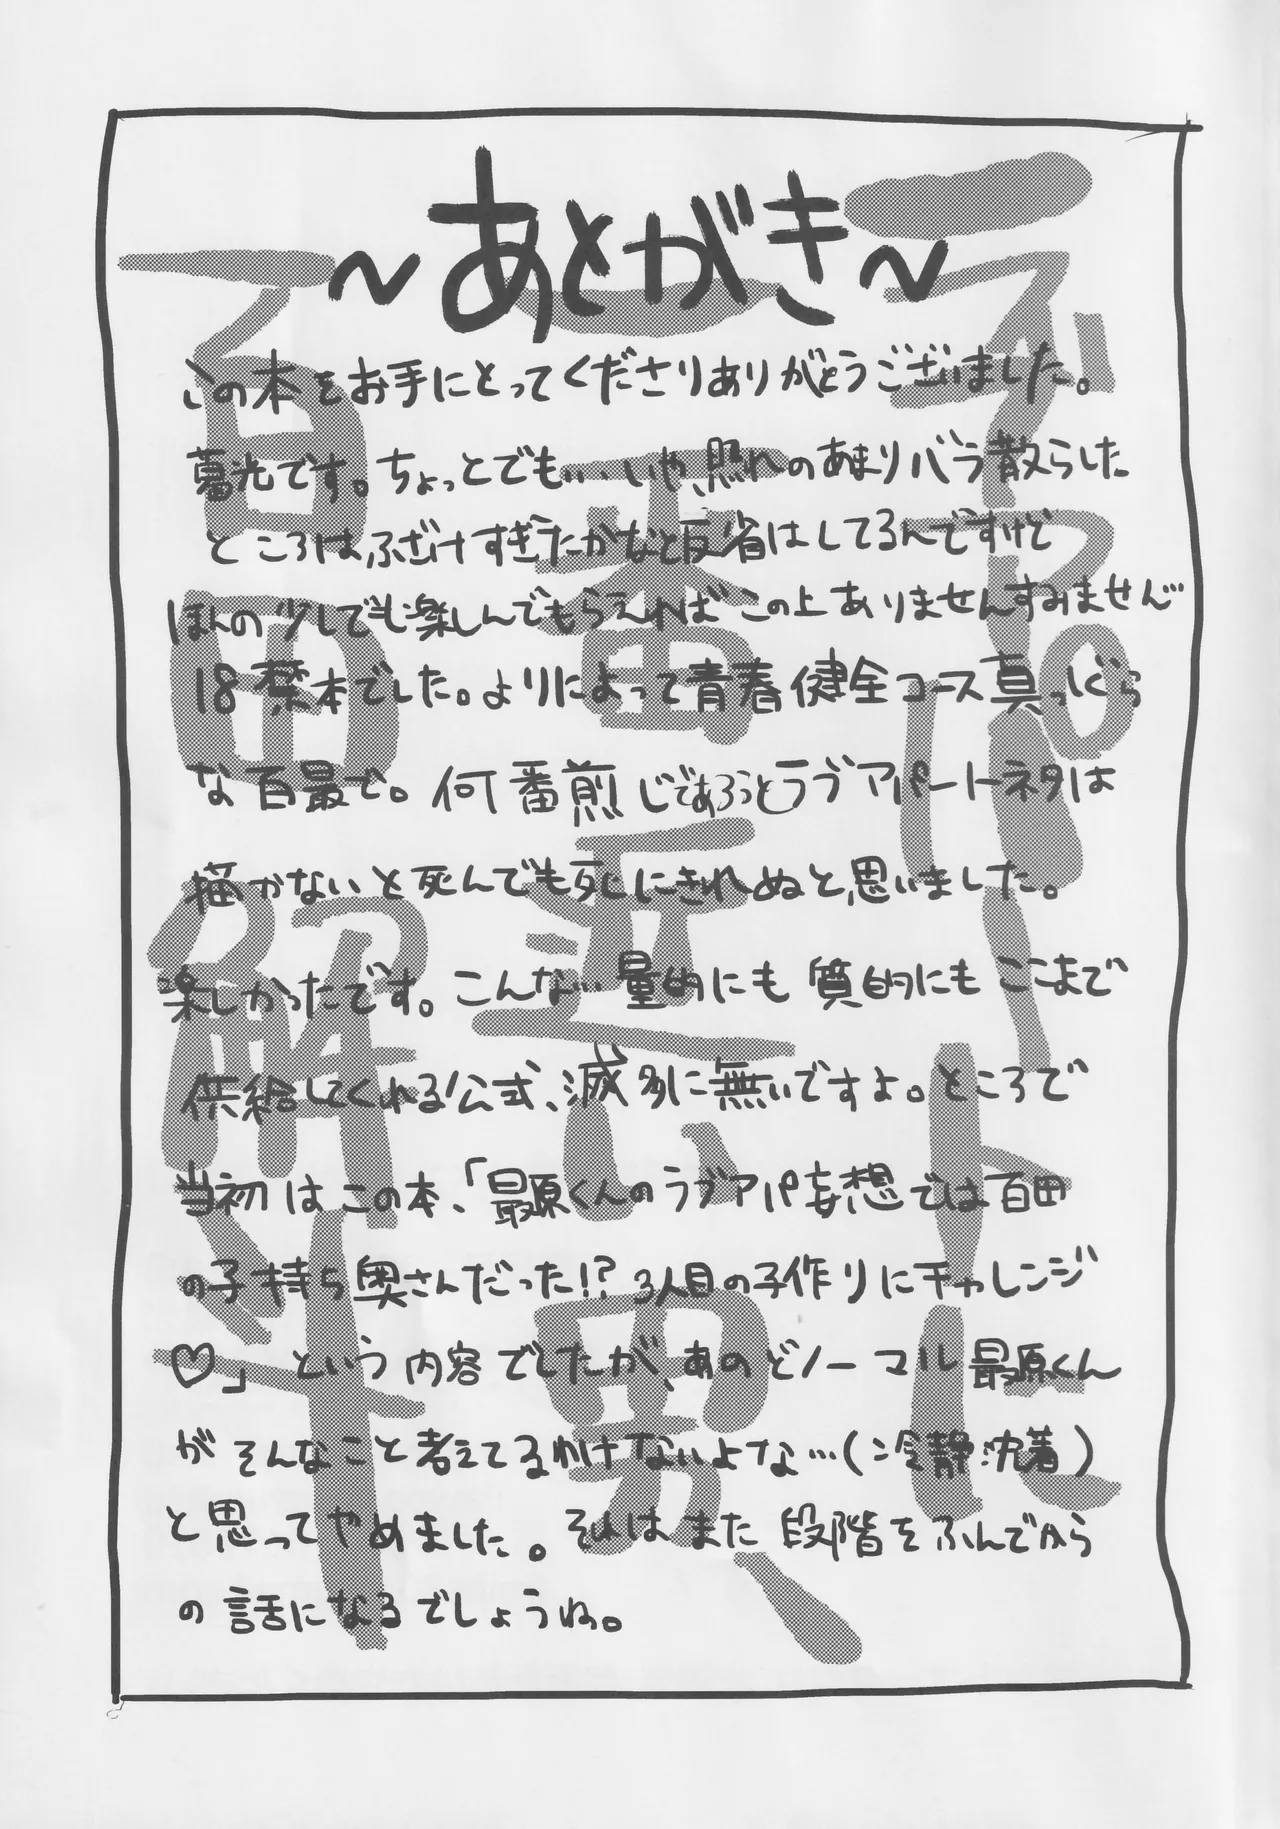 ～あとがき～
この本をお手にとってくださりありがとうございました。
暮光です。ちょっとでも…いや、照れのあまりバラ散らした
ところはふざけすぎたかなと反省はしてるんですけど
ほんの少しでも楽しんでもらえればこの上ありませんすみません
18禁本でした。よりによって青春健全コース真っしぐら
な百最で。何番煎じであろうとラブアパートネタは
描かないと死んでも死にきれぬと思いました。
楽しかったです。こんな…量的にも質的にもここまで
供給してくれる公式、滅多に無いですよ。ところで
当初はこの本、「最原くんのラブアパ妄想では百田
の子持ち奥さんだった!?3人目の子作りにチャレンジ
♡」という内容でしたが、あのどノーマル最原くん
がそんなこと考えてるわけないよな…(冷静沈着)
と思ってやめました。それはまた段階をふんでから
の話になるでしょうね。